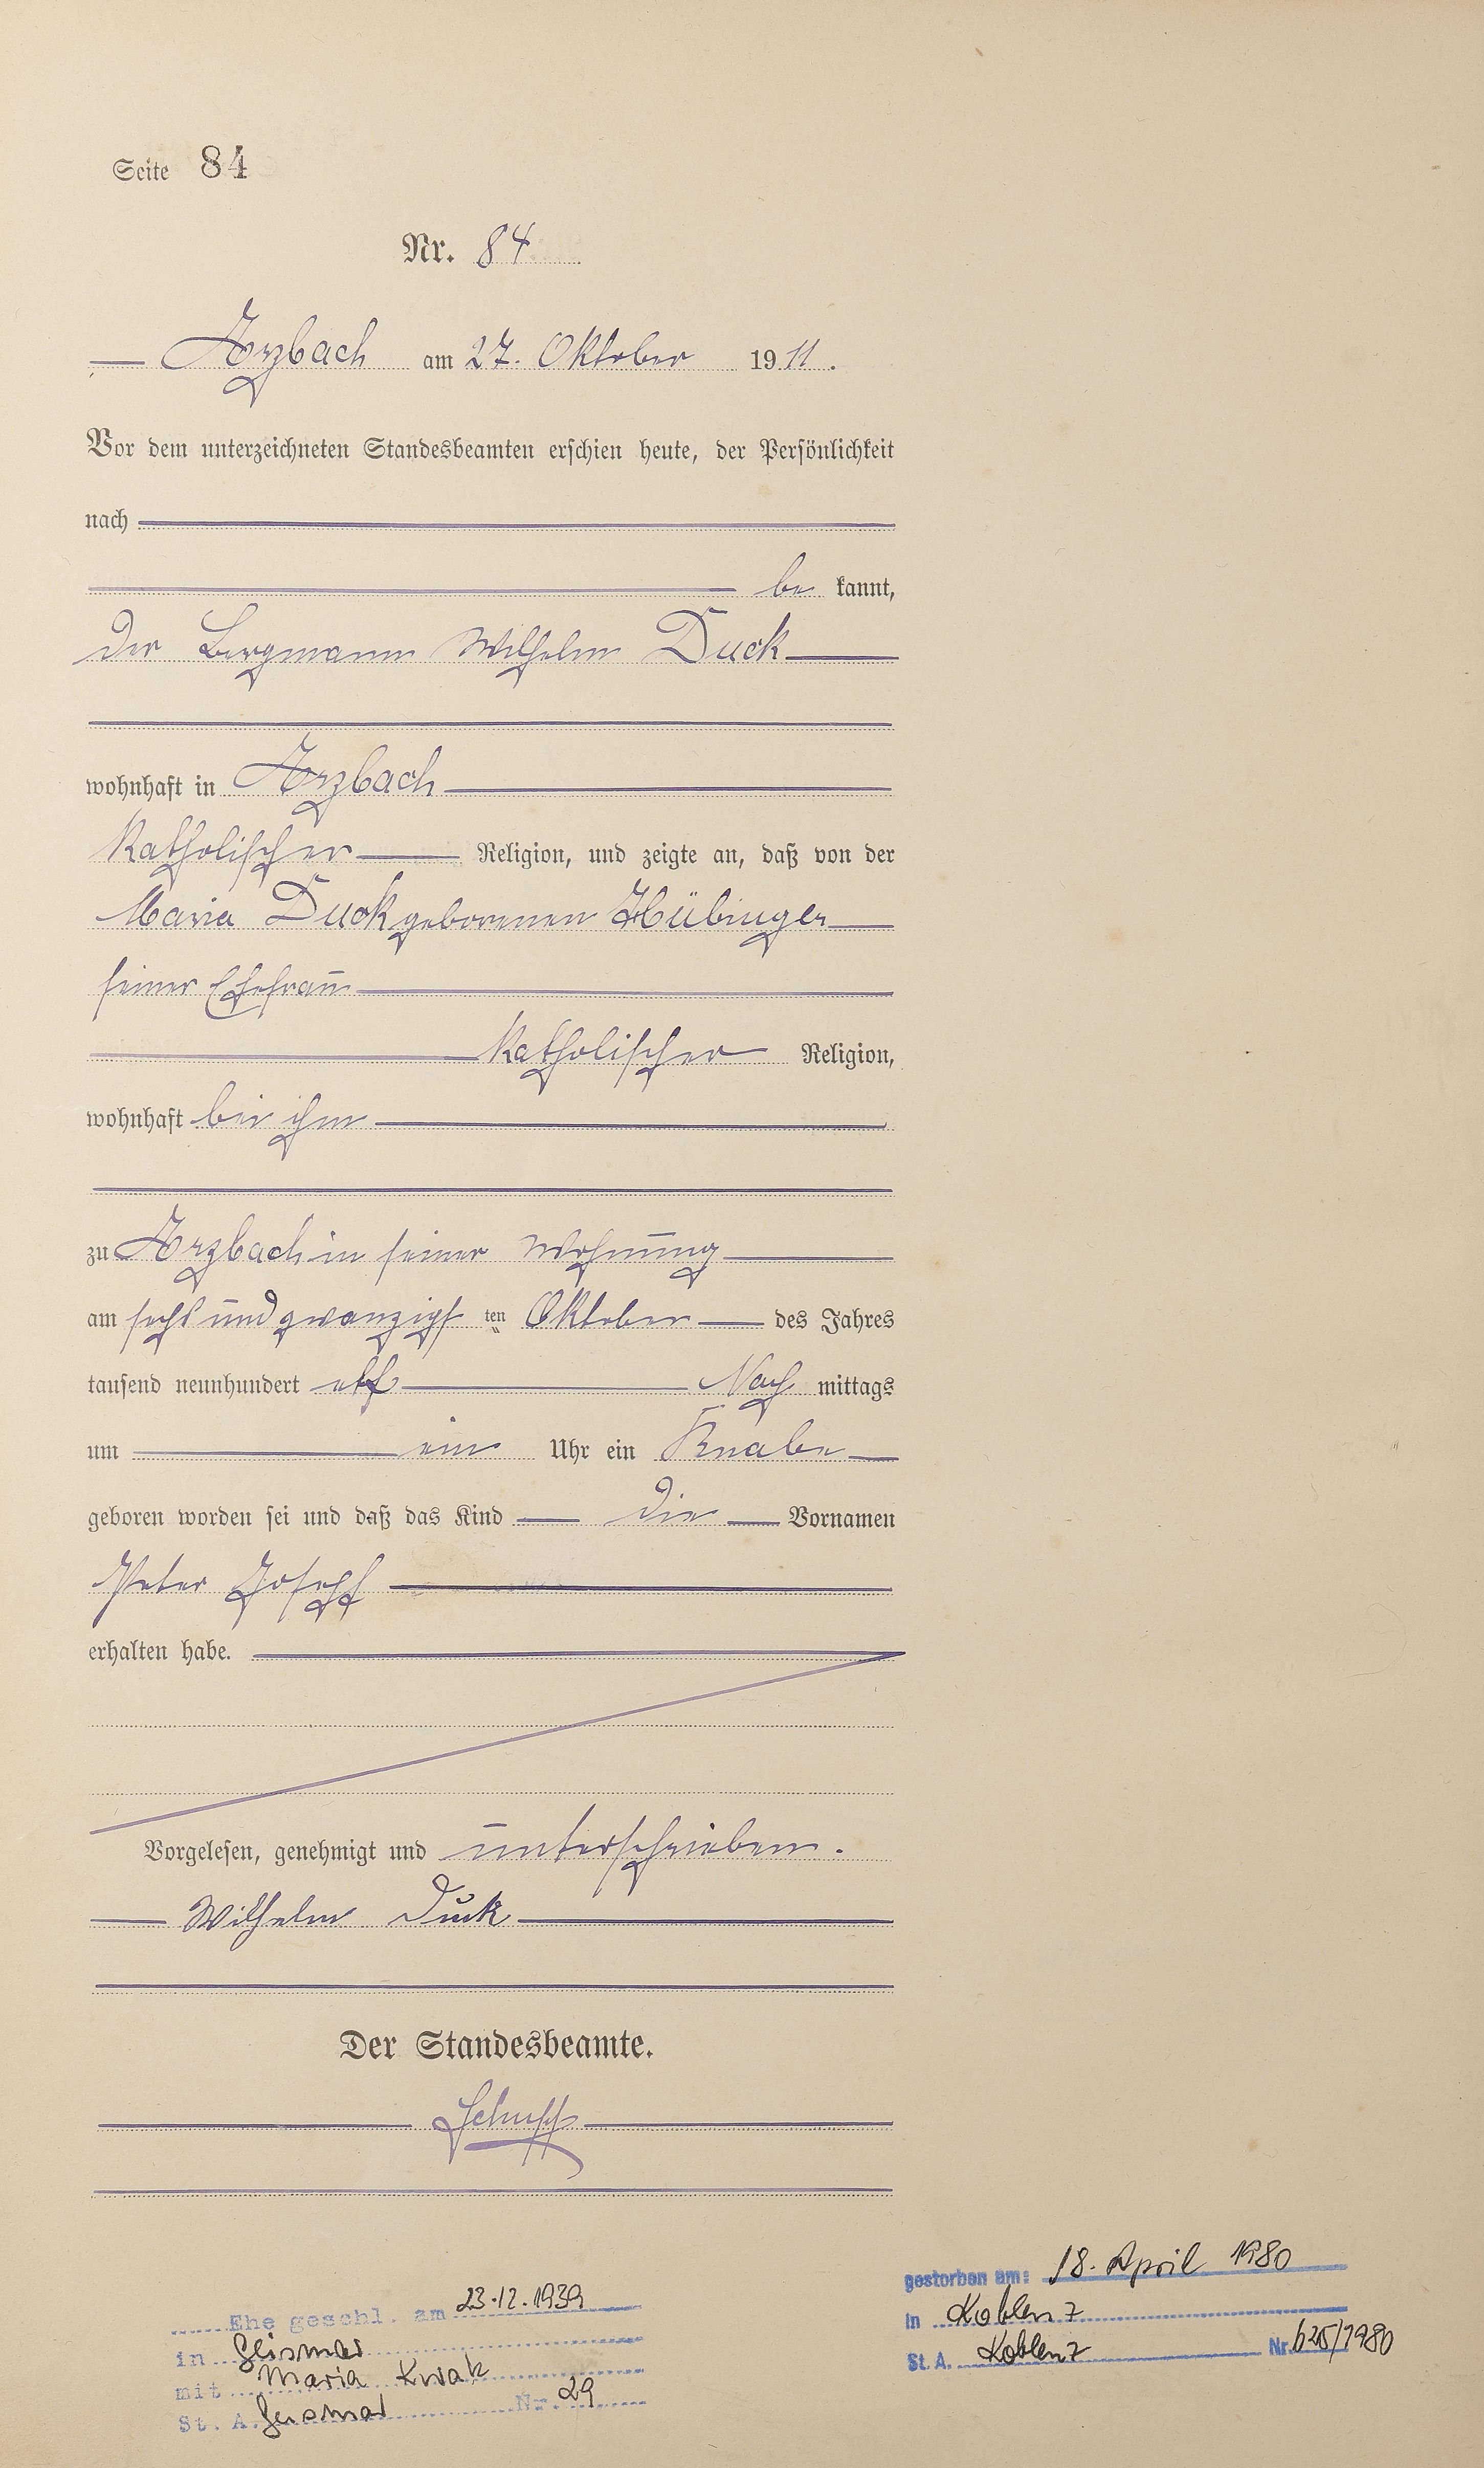 Seite 84
Nr. 84
Arzbach am 27. Oktober 1911.
Vor dem unterzeichneten Standesbeamten erschien heute, der Persönlichkeit
nach
be kannt,
der Bergmann Wilhelm Duck
wohnhaft in Arzbach
katholischer Religion, und zeigte an, daß von der
Maria Duck geborenen Hübinger
seiner Ehefrau
katholischer Religion,
wohnhaft bei ihm
zu Arzbach in seiner Wohnung
am sechs und zwanzigsten Oktober des Jahres
tausend neunhundert elf Nach mittags
um ein Uhr ein Knabe
geboren worden sei und daß das Kind die Vornamen
Peter Joseph
erhalten habe.
Vorgelesen, genehmigt und unterschrieben.
Wilhelm Duck
Der Standesbeamte.
Schupp
Ehe geschl. am 23.12.1939
in Geismar
mit Maria Kwak
St. A. Geismar Nr. 29
gestorben am: 18. April 1980
in Koblenz
St. A. Koblenz Nr. 625/1980